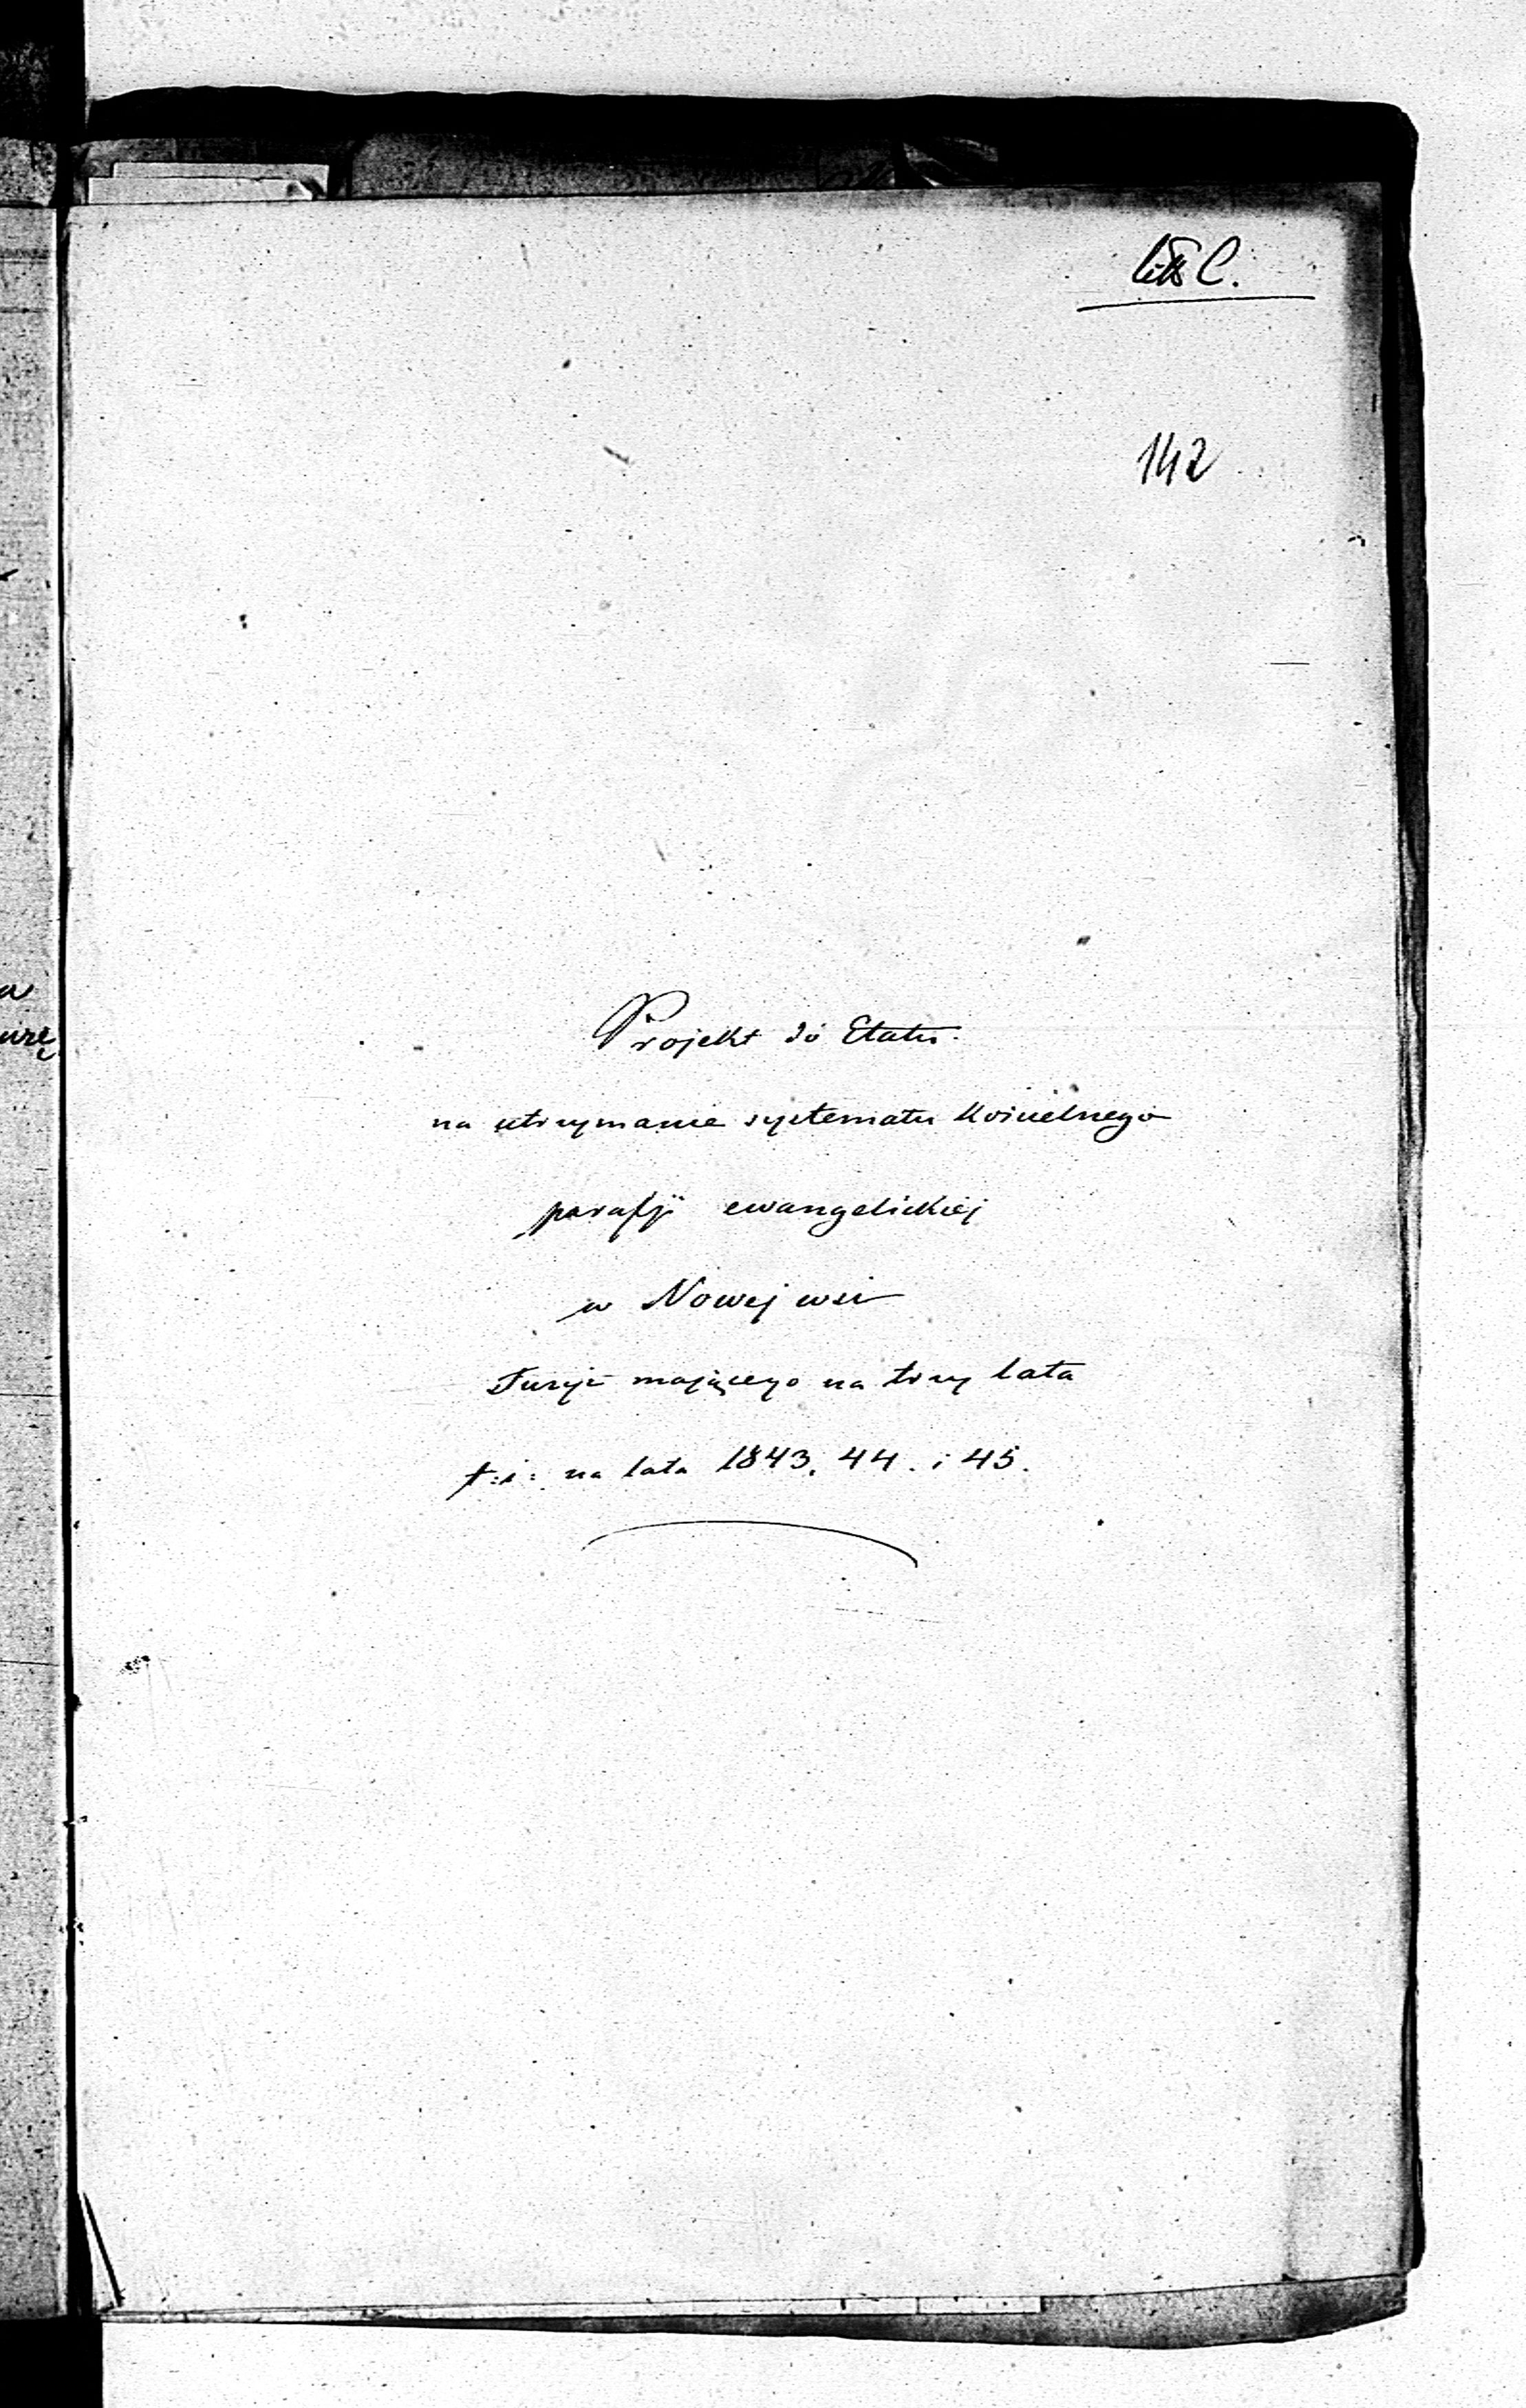 litt C.
142
Projekt do Etatu
na utrzymanie systematu Koscielnego
parafji ewangelickiej
w Nowej wsi
służyć mającego na trzy lata
t: i: na lata 1843. 44. i 45.